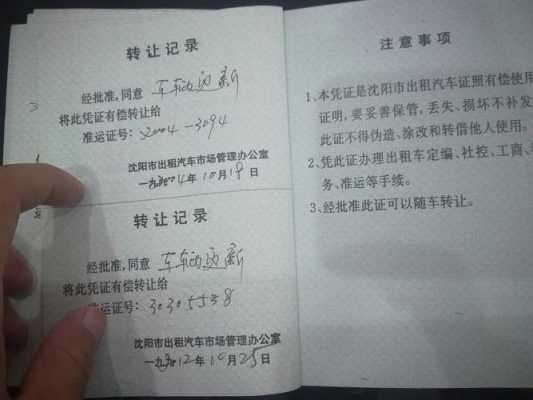 转让记录
经批准,同意 车辆更新
将此凭证有偿转让给
准运证号: 32004-3094
沈阳市出租汽车市场管理办公室
一九2004年10月19日
转让记录
经批准,同意 车辆更新
将此凭证有偿转让给
准运证号: 30305538
沈阳市出租汽车市场管理办公室
一九2012年10月25日
注意事项
1、本凭证是沈阳市出租汽车证照有偿使用
证明,要妥善保管,丢失、损坏不补发
此证不得伪造、涂改和转借他人使用。
2、凭此证办理出租车定编、社控、工商、
务、准运等手续。
3、经批准此证可以随车转让。